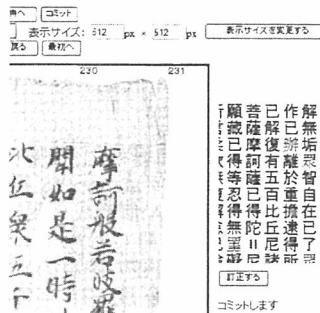 へ コミット
表示サイズ: 512 px × 512 px 表示サイズを変更する
戻る 最初へ
230 231
摩訶般若波羅
聞如是一時
比丘衆五千
解無垢眾智自在已了眾
作已辦離於重擔逮得所
已解復有五百比丘尼諸
菩薩摩訶薩已得陀II尼
願藏已得等忍得無罣礙
訂正する
コミットします